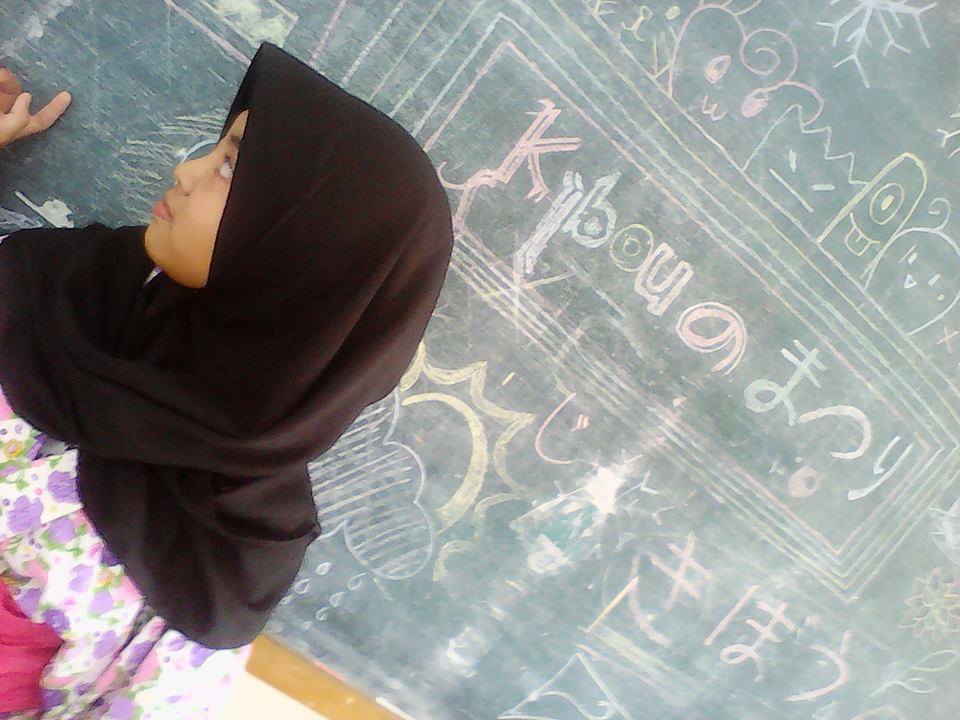 Kibouのまつり
きぼう